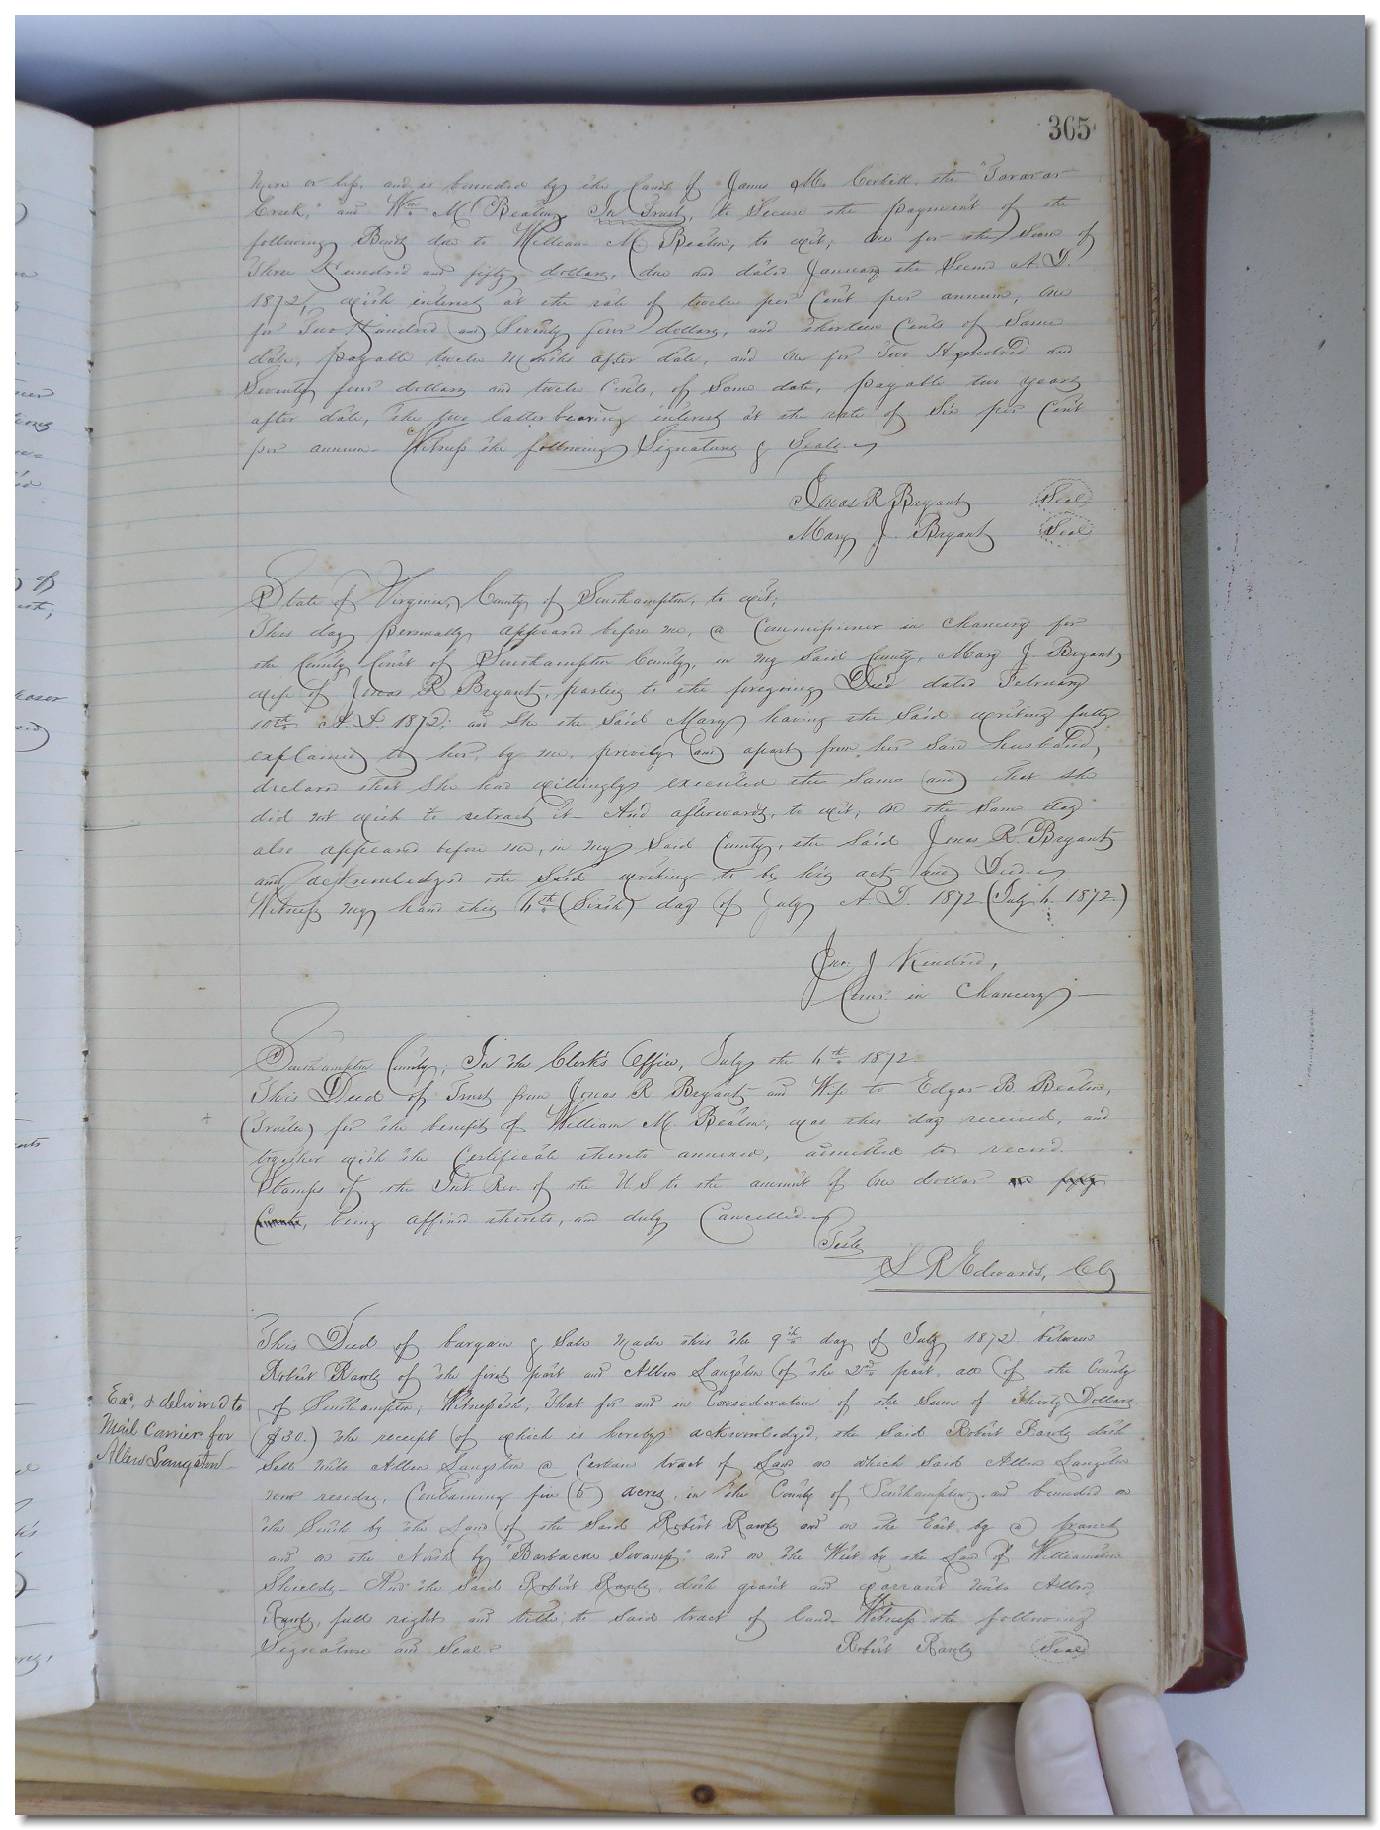 365
more or less, and is bounded by the lands of James M. Corbitt, the "Tararar
Creek," and Wm. M. Beaton, In Trust, to Secure the payment of the
following Bonds due to William M Beaton, to wit; One for the Sum of
Three Hundred and fifty dollars, due and dated January the Second A.D.
1872, with interest at the rate of twelve per Cent per annum, One
for Two Hundred and Seventy four dollars, and thirteen Cents of Same
date, payable twelve months after date, and one for Two Hundred and
Seventy four dollars and twelve Cents, of Same date, payable two years
after date, the two latter bearing interest at the rate of Six per Cent
per annum. Witness the following Signatures & Seals
Jonas R Bryant Seal
Mary J. Bryant Seal
State of Virginia, County of Southampton, to wit;
This day personally appeared before me, a Commissioner in Chancery for
the County Court of Southampton County, in my Said County, Mary J Bryant,
wife of Jonas R Bryant, parties to the foregoing Deed dated February
10th A.D. 1872; and She the Said Mary having the Said writing fully
explained to her, by me, privily and apart from her Said husband,
declared that She had willingly executed the Same and that She
did not wish to retract it. And afterwards, to wit; on the Same day
also appeared before me, in my Said County, the Said Jonas R. Bryant
and acknowledged the Said writing to be his act and Deed.
Witness my hand this 6th (Sixth) day of July A.D. 1872 (July 6. 1872.)
Jno. J Kindred,
Comr. in Chancery
Southampton County; In the Clerk's Office, July the 6th 1872.
This Deed of Trust from Jonas R Bryant and Wife to Edgar B. Beaton,
(Trustee) for the benefit of William M. Beaton, was this day received, and
together with the Certificate thereto annexed, admitted to record.
Stamps of the Int. Rev. of the U S to the amount of One dollar and fifty
Cents, being affixed thereto, and duly Cancelled
Teste
L R Edwards, CC
This Deed of bargain & Sale made this the 9th day of July 1872 between
Robert Rawls of the first part and Allen Langston of the 2nd part, all of the County
of Southampton; Witnesseth, That for and in Consideration of the Sum of Thirty Dollars
($30.) the receipt of which is hereby acknowledged, the Said Robert Rawls doth
Sell unto Allen Langston a Certain tract of Land on which Said Allen Langston
now resides, Containing five (5) acres, in the County of Southampton, and bounded on
the South by the Land of the Said Robert Rawls and on the East by a branch
and on the North by "Barbacue Swamp," and on the West by the Land of Williamson
Shields. And the Said Robert Rawls, doth grant and warrant unto Allen
Rawls, full right and title to Said tract of land. Witness the following
Signature and Seal. Robert Rawls Seal
Exd. & delivered to
Mail Carrier for
Allen Langston